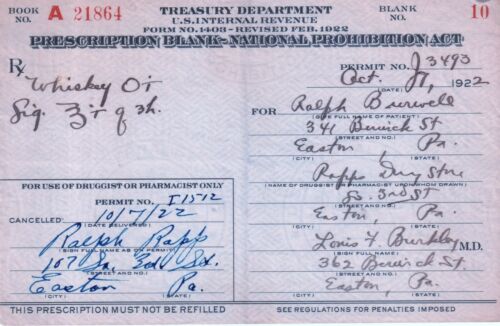 BOOK NO. A 21864
TREASURY DEPARTMENT
U.S. INTERNAL REVENUE
FORM NO. 1403-REVISED FEB. 1922
BLANK NO. 10
PRESCRIPTION BLANK-NATIONAL PROHIBITION ACT
Rx
Whiskey Oi
Sig. ℥i q 3h.
PERMIT NO. J3493
Oct. 7, 1922
(DATE)
FOR Ralph Burwell
(GIVE FULL NAME OF PATIENT)
341 Berwick St
(STREET AND NO.)
Easton, Pa.
(CITY) (STATE)
Rapps Drug Store
(NAME OF DRUGGIST OR PHARMACIST UPON WHOM DRAWN)
So. 3rd St
(STREET AND NO.)
Easton, Pa.
(CITY) (STATE)
Louis F. Burkley M.D.
(SIGN FULL NAME)
362 Berwick St
(STREET AND NO.)
Easton, Pa.
(CITY) (STATE)
FOR USE OF DRUGGIST OR PHARMACIST ONLY
PERMIT NO. I1512
CANCELLED: 10/7/22
(DATE DELIVERED)
Ralph Rapp
(SIGN FULL NAME AS ON PERMIT)
107 So. 3rd St.
(STREET AND NO.)
Easton Pa.
(CITY) (STATE)
THIS PRESCRIPTION MUST NOT BE REFILLED
SEE REGULATIONS FOR PENALTIES IMPOSED